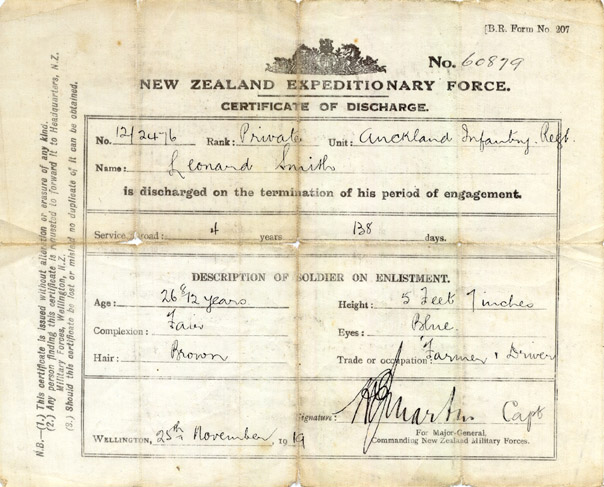 [B.R. Form No. 207
No. 60879
NEW ZEALAND EXPEDITIONARY FORCE.
CERTIFICATE OF DISCHARGE.
No. 12/2476 Rank: Private Unit: Auckland Infantry Regt.
Name: Leonard Smith
is discharged on the termination of his period of engagement.
Service abroad: 4 years 138 days.
DESCRIPTION OF SOLDIER ON ENLISTMENT.
Age: 26 years Height: 5 Feet 7 inches
Complexion: Fair Eyes: Blue.
Hair: Brown Trade or occupation: Farmer & Driver
Signature: Capt
For Major-General,
Commanding New Zealand Military Forces.
WELLINGTON, 25th November, 1919
N.B.—(1.) This certificate is issued without alteration or erasure of any kind.
(2.) Any person finding this certificate is requested to forward it to Headquarters, N.Z.
Military Forces, Wellington, N.Z.
(3.) Should this certificate be lost or mislaid no duplicate of it can be obtained.